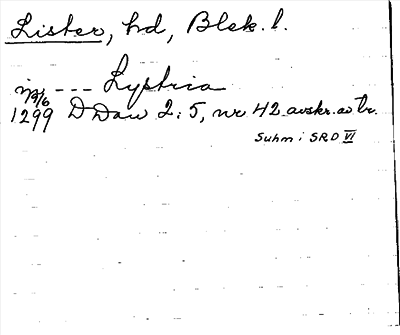 Lister, hd, Blek. l.
in --- Lystria
1299 D Dan 2:5, nr 42 avskr. av tr.
Suhm i SRD VI